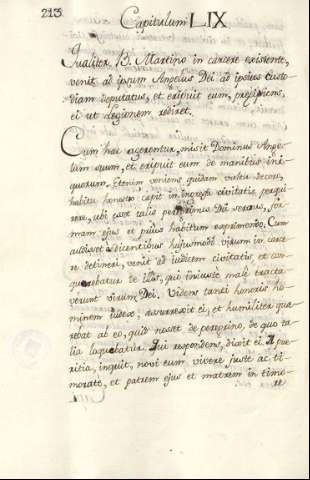 213
Capitulum LIX
Qualiter B. Martino in carcere existente,
venit ad ipsum Angelus Dei ad ipsius custo-
diam deputatus, et eripuit eum, precipiens,
ei ut Legionem rediret.
Cum hac agerentur, misit Dominus Ange-
lum suum, et eripuit eum de manibus ini-
quorum. Etenim veniens quidam vultu decoro,
habitu honesto cœpit in foresta civitatis perqui-
rere, ubi esset talis peregrinus Dei servus, for-
mam ejus et prius habitum exprimendo. Cum
audisset a dicentibus hujusmodi virum in carce-
re detineri, venit ad iudicem civitatis, et con-
querebatur de illis, qui iniuste male tracta-
verunt virum Dei. Videns tanti honoris ho-
minem iudex, assurrexit ei, et humiliter quæ-
rebat ab eo, quis nosset de peregrino, de quo ta-
lia loquebatur. Qui respondens, dixit ei. A pue-
ritia, inquit, novi eum vivere juste ac ti-
morate, et patrem ejus et matrem in timo-
re